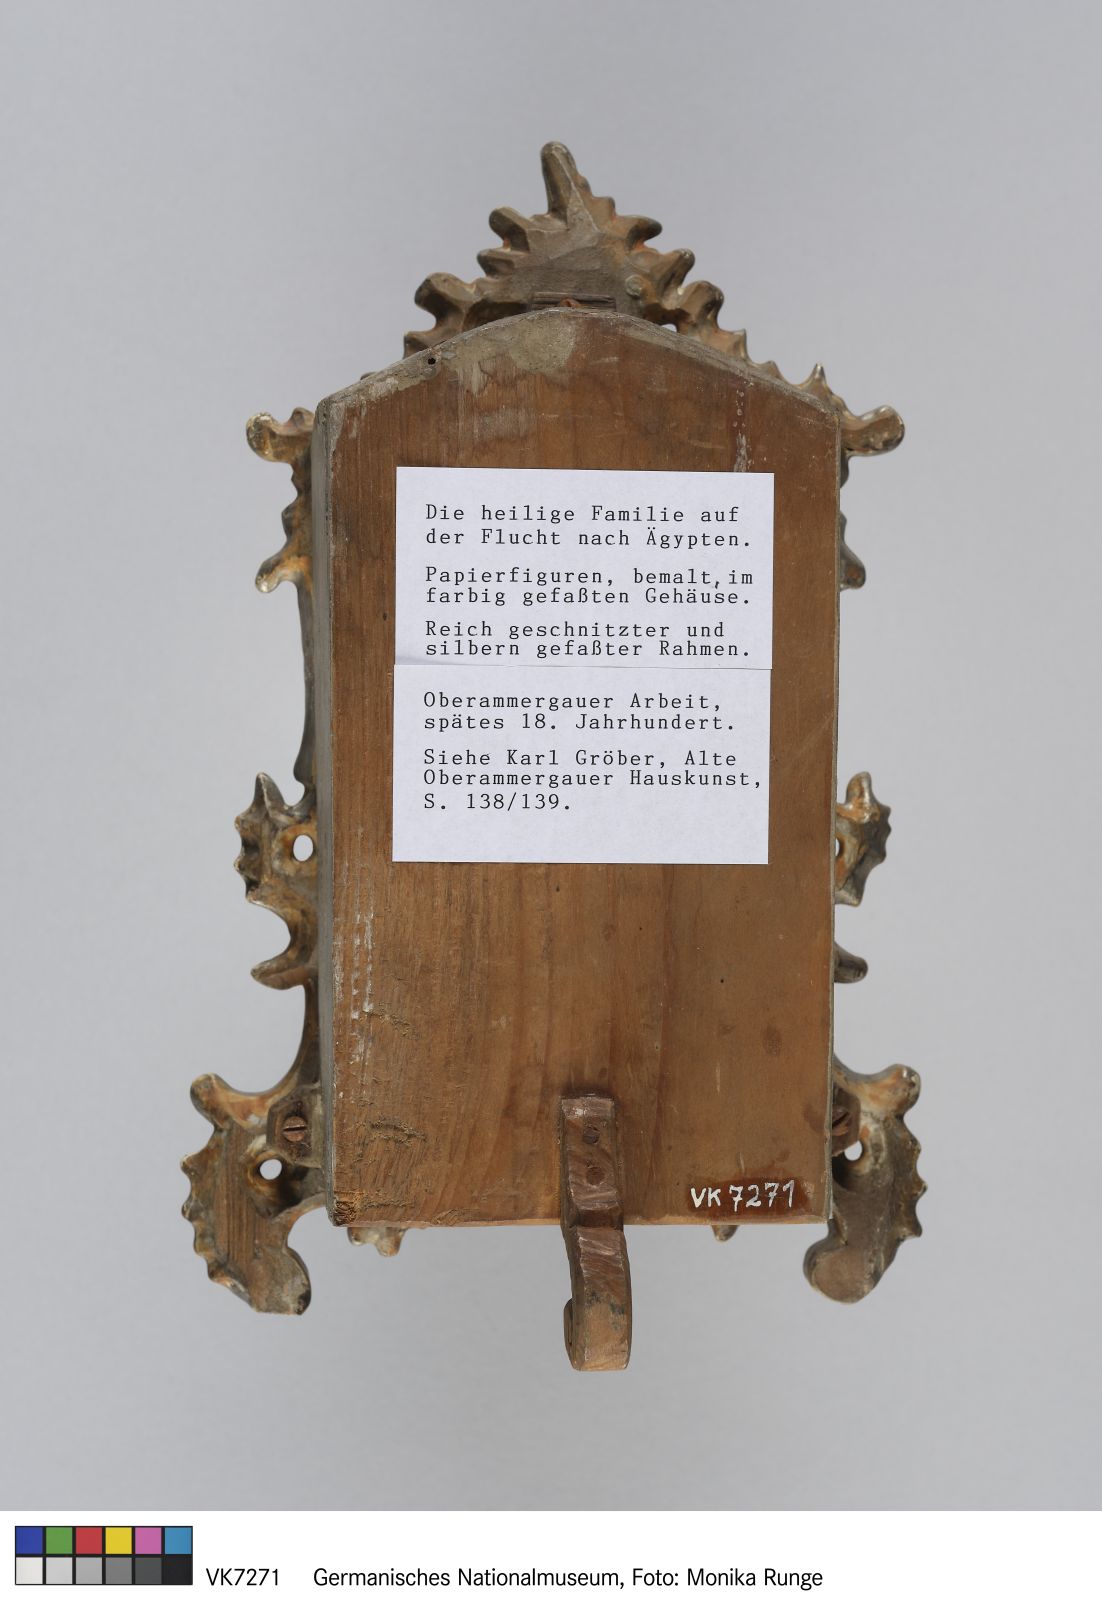 Die heilige Familie auf
der Flucht nach Ägypten.
Papierfiguren, bemalt, im
farbig gefaßten Gehäuse.
Reich geschnitzter und
silbern gefaßter Rahmen.
Oberammergauer Arbeit,
spätes 18. Jahrhundert.
Siehe Karl Gröber, Alte
Oberammergauer Hauskunst,
S. 138/139.
VK 7271
VK7271 Germanisches Nationalmuseum, Foto: Monika Runge